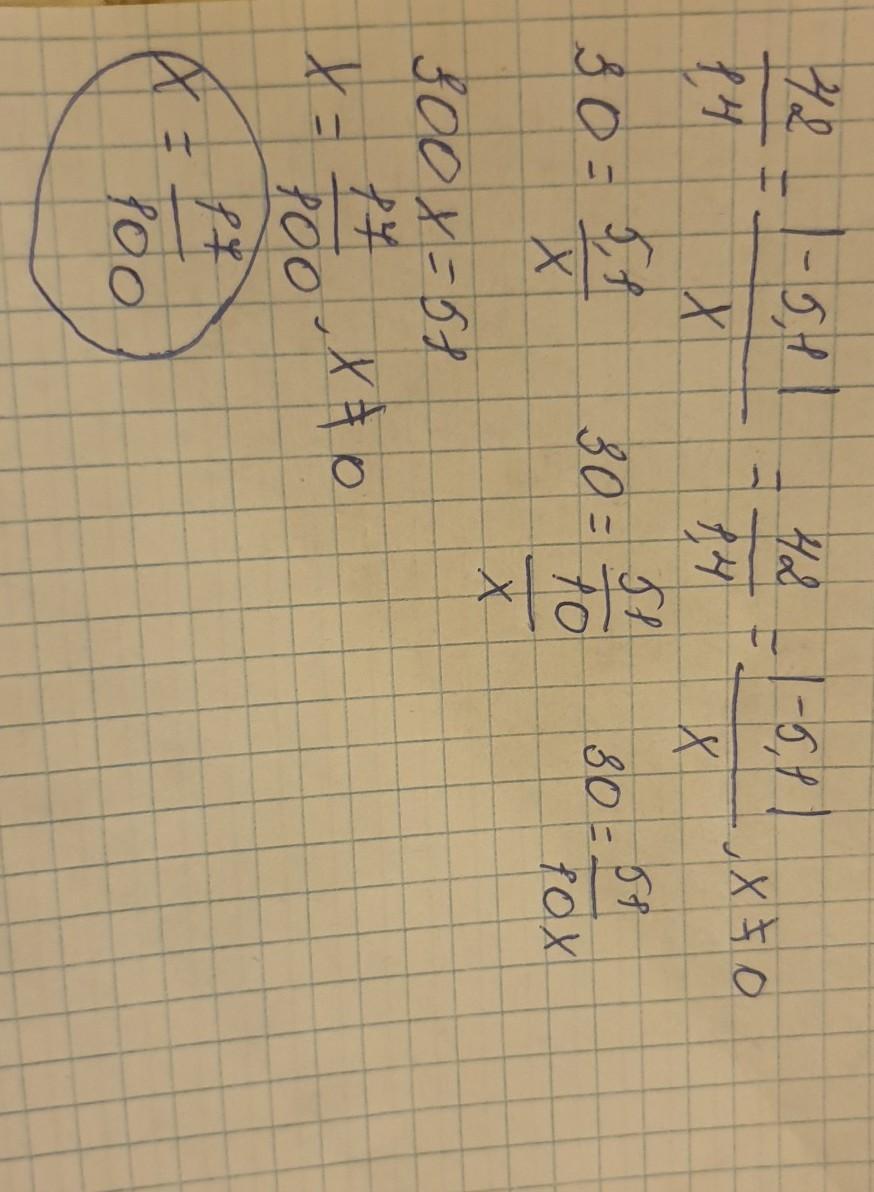 42/1,4 = |-5,1|/x = 42/1,4 = |-5,1|/x, x ≠ 0
30 = 5,1/x 30 = 51/10/x 30 = 51/10x
300x = 51
x = 17/100, x ≠ 0
x = 17/100